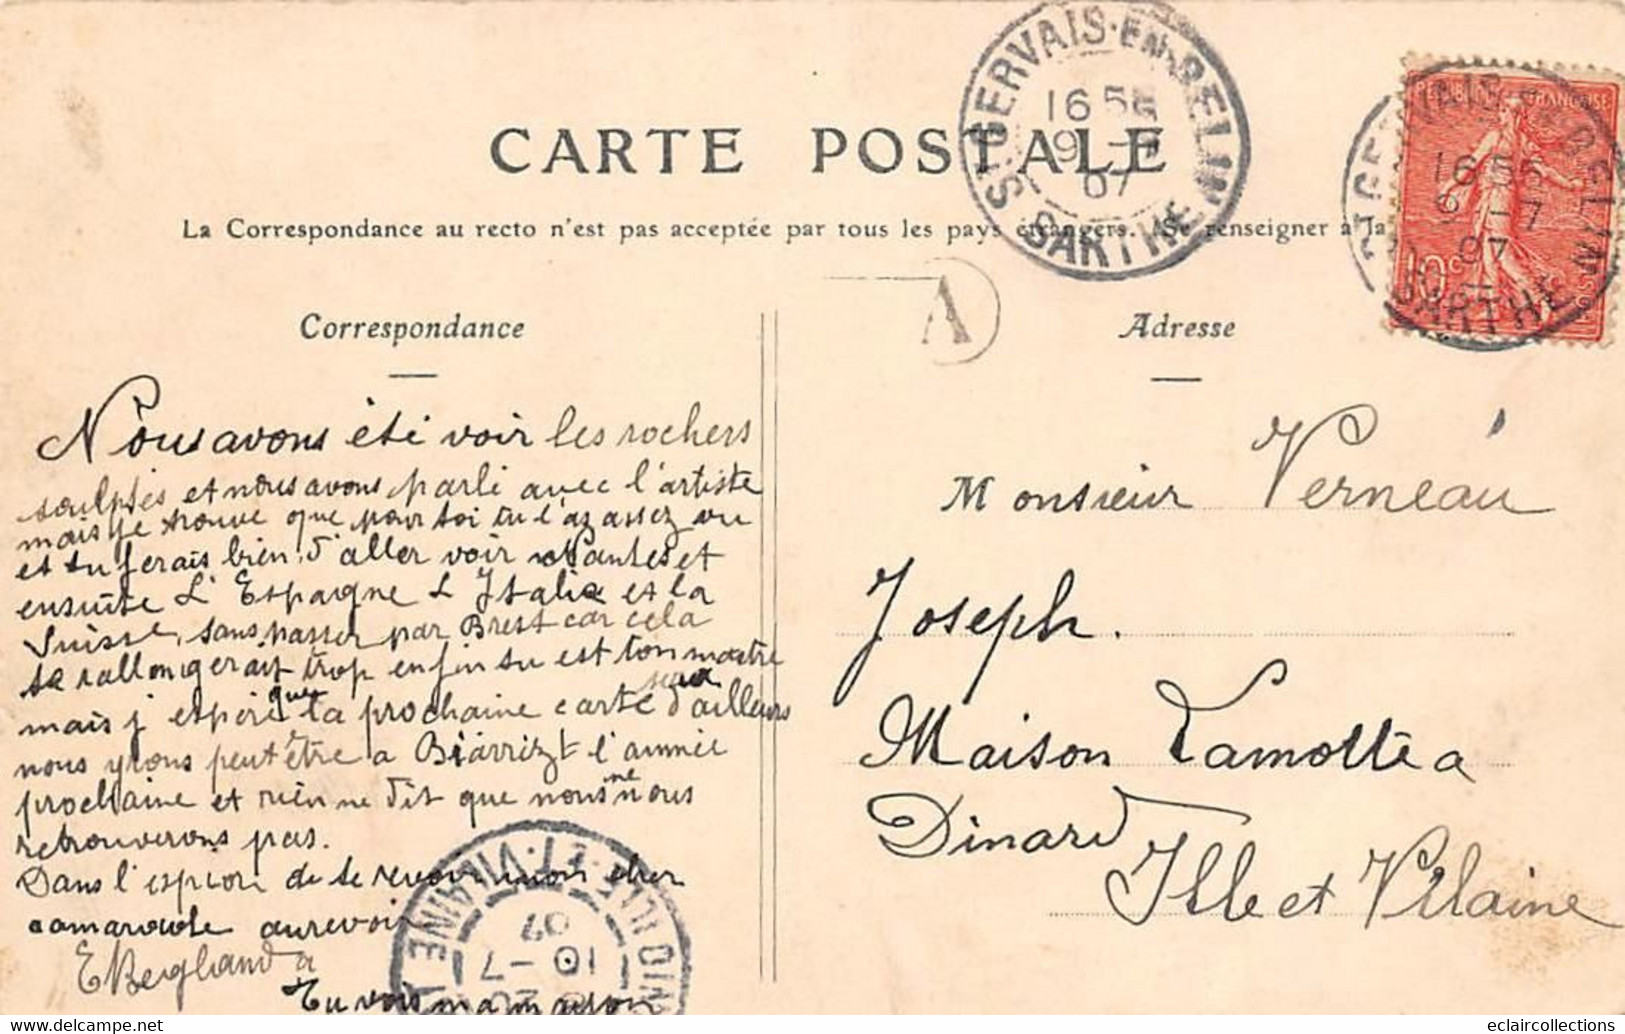 CARTE POSTALE
La Correspondance au recto n'est pas acceptée par tous les pays étrangers. (Se renseigner à la
Correspondance
Adresse
ST GERVAIS-EN-BELIN
16 55
9 -7
07
SARTHE
REPUBLIQUE FRANÇAISE
10c
POSTES
ST GERVAIS-EN-BELIN
16 55
9 -7
07
SARTHE
A
Nous avons été voir les rochers
sculptés et nous avons parlé avec l'artiste
mais je trouve que pour toi tu l'as assez vu
et tu ferais bien d'aller voir Nantes et
ensuite L'Espagne L'Italie et la
Suisse, sans passer par Brest car cela
te rallongerait trop enfin tu est ton maitre
mais j'espère que la prochaine carte sera d'ailleurs
nous yrons peut être a Biarrizt l'année
prochaine et rien ne dit que nous ne nous
retrouverons pas.
Dans l'espoir de te revoir mon cher
camarade aurevoir
Tu vois ma maison
Monsieur Verneau
Joseph.
Maison Lamotte a
Dinard
Ille et Vilaine
ILLE-ET-VILAINE
10 -7
07
eclaircollections
www.delcampe.net